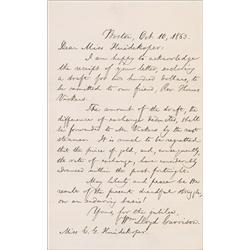 Boston, Oct. 10, 1863.
Dear Miss Huidekoper:
I am happy to acknowledge
the receipt of your letter, enclosing a
draft for two hundred dollars, to
be remitted to our friend, Rev. Thomas
Vickers.
The amount of the draft, the
difference of exchange deducted, shall
be forwarded to Mr. Vickers by the next
steamer. It is much to be regretted,
that the price of gold, and, consequently
the rate of exchange, have considerably
advanced within the past fortnight.
May liberty and peace be the
result of the present dreadful struggle,
on an enduring basis!
Yours, for the jubilee,
Wm. Lloyd Garrison.
Miss E. G. Huidekoper.